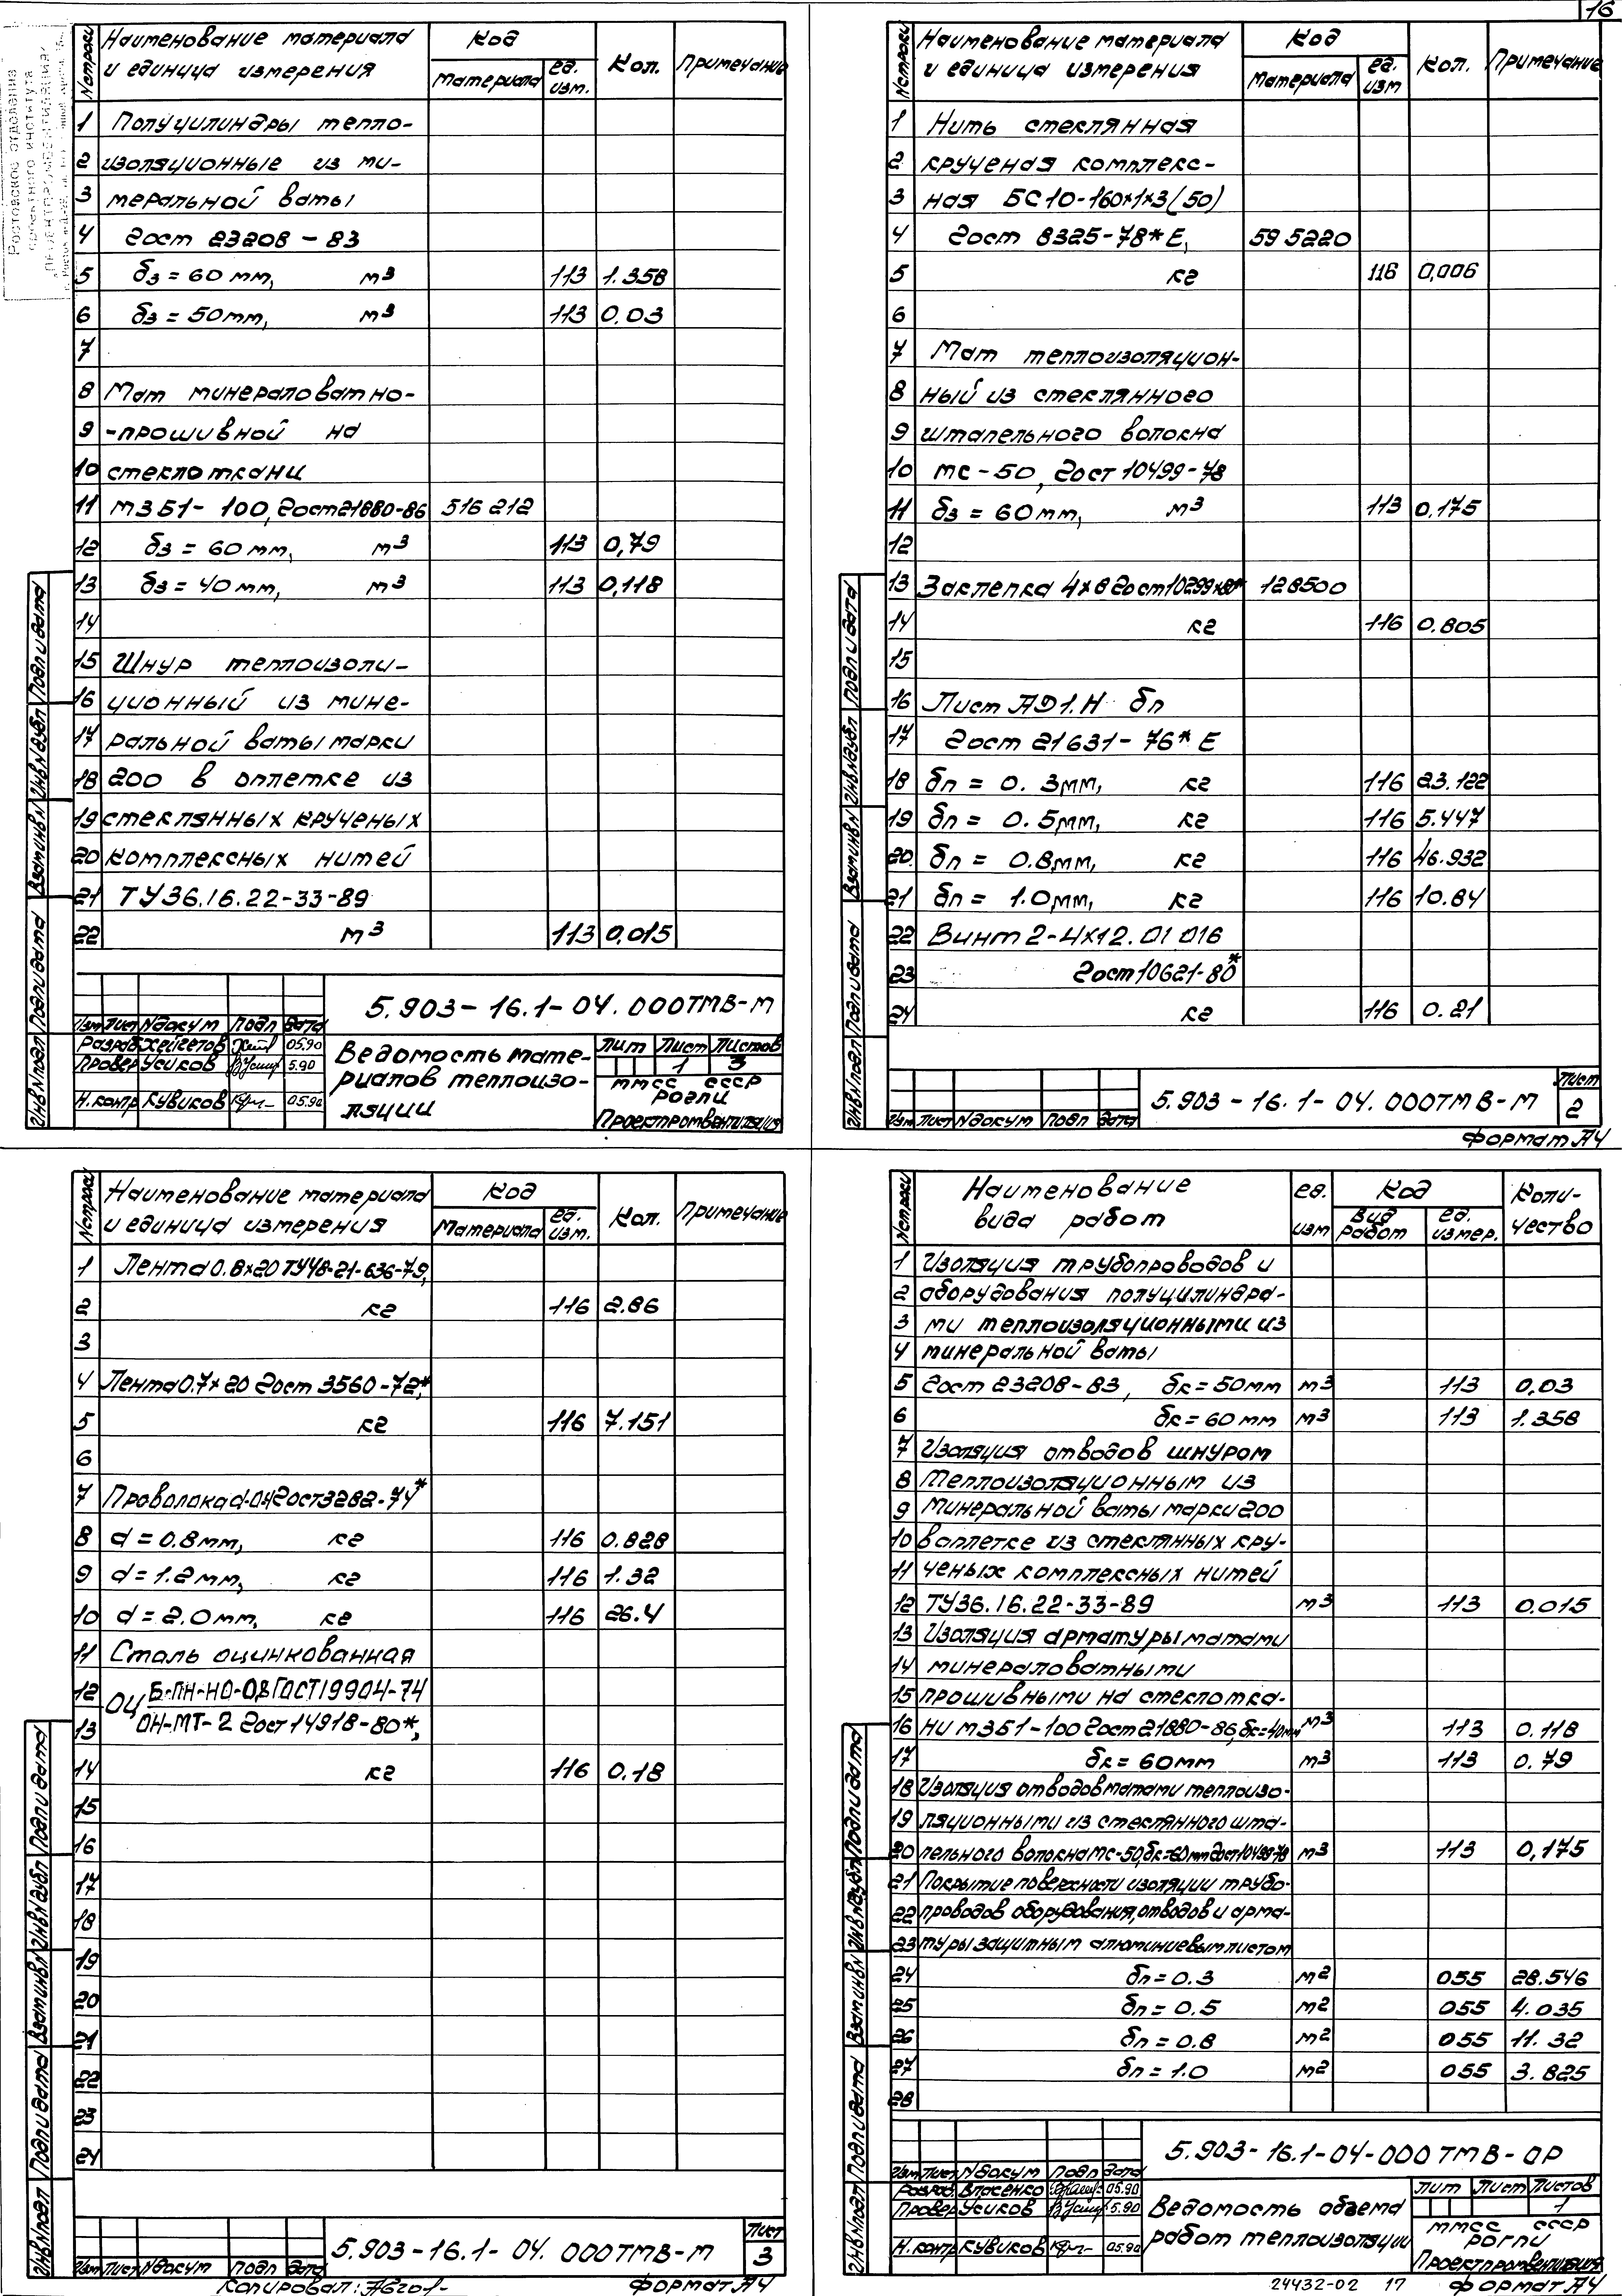 16
№ строки Наименование материала и единица измерения Код материала ед. изм. Кол. Примечание
1 Полуцилиндры тепло-
2 изоляционные из ми-
3 неральной ваты
4 гост 23208-83
5 δз = 60 мм, м3 113 1.358
6 δз = 50 мм, м3 113 0.03
7
8 Мат минераловатно-
9 -прошивной на
10 стеклоткани
11 м3 Б1-100, гост 21880-86 516 212
12 δз = 60 мм, м3 113 0,79
13 δз = 40 мм, м3 113 0,118
14
15 Шнур теплоизоли-
16 ционный из мине-
17 ральной ваты марки
18 200 в оплетке из
19 стеклянных крученых
20 комплексных нитей
21 ТУ36.16.22-33-89
22 м3 113 0,015
5.903-16.1-04.000ТМВ-М
Изм Лист № докум Подп Дата
Разраб Хейгетов 05.90
Провер Усиков 5.90
Н.контр Кувиков 05.90
Ведомость мате-
риалов теплоизо-
ляции
Лит Лист Листов
1 3
ММСС СССР
РОГПИ
Проектпромвентиляция
Инв N подл Подп и дата Взам инв N Инв N дубл Подп и дата
№ строки Наименование материала и единица измерения Код материала ед. изм Кол. Примечание
1 Нить стеклянная
2 крученая комплекс-
3 ная БС10-160х1х3(50)
4 гост 8325-78* Е, 59 5220
5 кг 116 0,006
6
7 Мат теплоизоляцион-
8 ный из стеклянного
9 штапельного волокна
10 мс-50, гост 10499-78
11 δз = 60 мм, м3 113 0,175
12
13 Заклепка 4х8 гост 10299-80* 128500
14 кг 116 0.805
15
16 Лист АД1.Н δп
17 гост 21631-76* Е
18 δп = 0.3мм, кг 116 23.122
19 δп = 0.5мм, кг 116 5.447
20 δп = 0.8мм, кг 116 46.932
21 δп = 1.0мм, кг 116 10.84
22 Винт 2-4х12.01.016
23 гост 10621-80*
24 кг 116 0.21
5.903-16.1-04.000ТМВ-М
Лист
2
Изм Лист N докум Подп Дата
Формат А4
Инв N подл Подп и дата Взам инв N Инв N дубл Подп и дата
№ строки Наименование материала и единица измерения Код Материала ед. изм. Кол. Примечание
1 Лента 0.8х20 ТУ48-21-636-79,
2 кг 116 2.86
3
4 Лента 0.7х20 гост 3560-72*,
5 кг 116 7.151
6
7 Проволока d-ОЧ гост 3282-74*
8 d = 0.8мм, кг 116 0.828
9 d = 1.2мм, кг 116 1.32
10 d = 2.0мм, кг 116 26.4
11 Сталь оцинкованная
12 ОЦ Б-ПН-НО-0,8 ГОСТ 19904-74
13 ОН-МТ-2 гост 14918-80*,
14 кг 116 0.18
15
16
17
18
19
20
21
22
23
24
5.903-16.1-04.000ТМВ-М
Лист
3
Изм Лист N докум Подп Дата
Копировал:
Формат А4
Инв N подл Подп и дата Взам инв N Инв N дубл Подп и дата
№ строки Наименование вида работ ед. изм Код Вид работ ед. измер. Коли-чество
1 Изоляция трубопроводов и
2 оборудования полуцилиндра-
3 ми теплоизоляционными из
4 минеральной ваты
5 гост 23208-83, δк = 50мм м3 113 0,03
6 δк = 60 мм м3 113 1.358
7 Изоляция отводов шнуром
8 теплоизоляционным из
9 минеральной ваты марки 200
10 в оплетке из стеклянных кру-
11 ченых комплексных нитей
12 ТУ36.16.22-33-89 м3 113 0,015
13 Изоляция арматуры матами
14 минераловатными
15 прошивными на стеклотка-
16 ни м3Б1-100 гост 21880-86, δк=40мм м3 113 0.118
17 δк = 60мм м3 113 0.79
18 Изоляция отводов матами теплоизо-
19 ляционными из стеклянного шта-
20 пельного волокна мс-50, δк=60мм гост 10499-78 м3 113 0,175
21 Покрытие поверхности изоляции трубо-
22 проводов оборудования, отводов и арма-
23 туры защитным алюминиевым листом
24 δп = 0.3 м2 055 28.546
25 δп = 0.5 м2 055 4.035
26 δп = 0.8 м2 055 11.32
27 δп = 1.0 м2 055 3.825
28
5.903-16.1-04-000ТМВ-ОР
Изм Лист N докум Подп Дата
Разраб Власенко 05.90
Провер Усиков 5.90
Н.контр Кувиков 05.90
Ведомость объема
работ теплоизоляции
Лит Лист Листов
1
ММСС СССР
РОГПИ
Проектпромвентиляция
24432-02 17
Формат А4
Инв N подл Подп и дата Взам инв N Инв N дубл Подп и дата